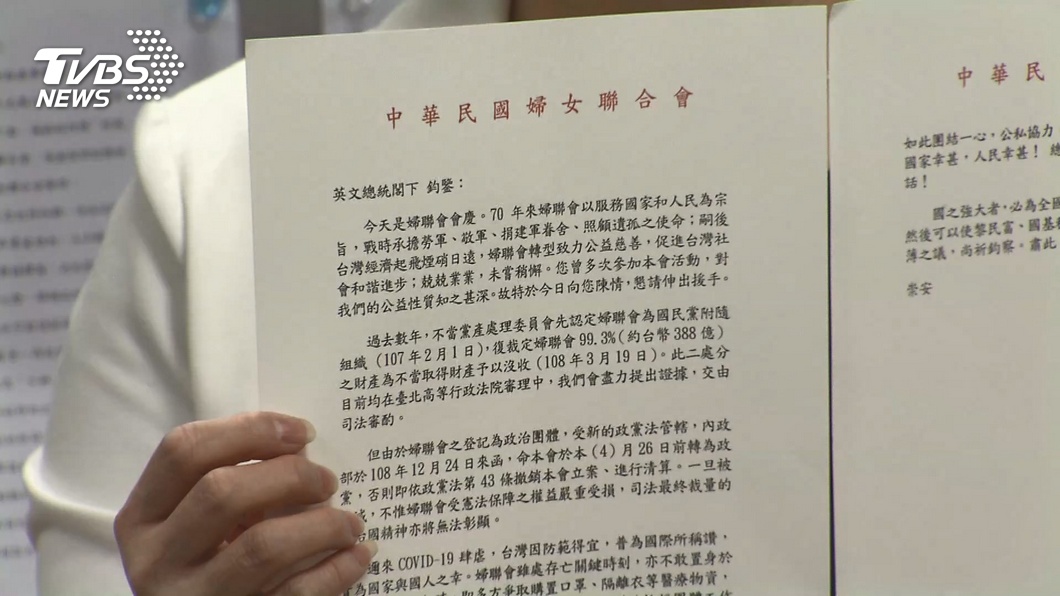 TVBS
NEWS
中華民國婦女聯合會
英文總統閣下 鈞鑒：
今天是婦聯會會慶。70 年來婦聯會以服務國家和人民為宗
旨，戰時承擔勞軍、敬軍、捐建軍眷舍、照顧遺孤之使命；嗣後
台灣經濟起飛煙硝日遠，婦聯會轉型致力公益慈善，促進台灣社
會和諧進步；兢兢業業，未嘗稍懈。您曾多次參加本會活動，對
我們的公益性質知之甚深。故特於今日向您陳情，懇請伸出援手。
過去數年，不當黨產處理委員會先認定婦聯會為國民黨附隨
組織 (107 年 2 月 1 日)，復裁定婦聯會 99.3%(約台幣 388 億)
之財產為不當取得財產予以沒收 (108 年 3 月 19 日)。此二處分
目前均在臺北高等行政法院審理中，我們會盡力提出證據，交由
司法審酌。
但由於婦聯會之登記為政治團體，受新的政黨法管轄，內政
部於 108 年 12 月 24 日來函，命本會於本 (4) 月 26 日前轉為政
黨，否則即依政黨法第 43 條撤銷本會立案、進行清算。一旦被
滅，不惟婦聯會受憲法保障之權益嚴重受損，司法最終裁量的
治國精神亦將無法彰顯。
邇來 COVID-19 肆虐，台灣因防範得宜，普為國際所稱讚，
為國家與國人之幸。婦聯會雖處存亡關鍵時刻，亦不敢置身於
即多方爭取購置口罩、隔離衣等醫療物資，
中華民
如此團結一心，公私協力
國家幸甚，人民幸甚！ 總
話！
國之強大者，必為全國
然後可以使黎民富、國基
薄之議，尚祈鈞察。肅此
崇安